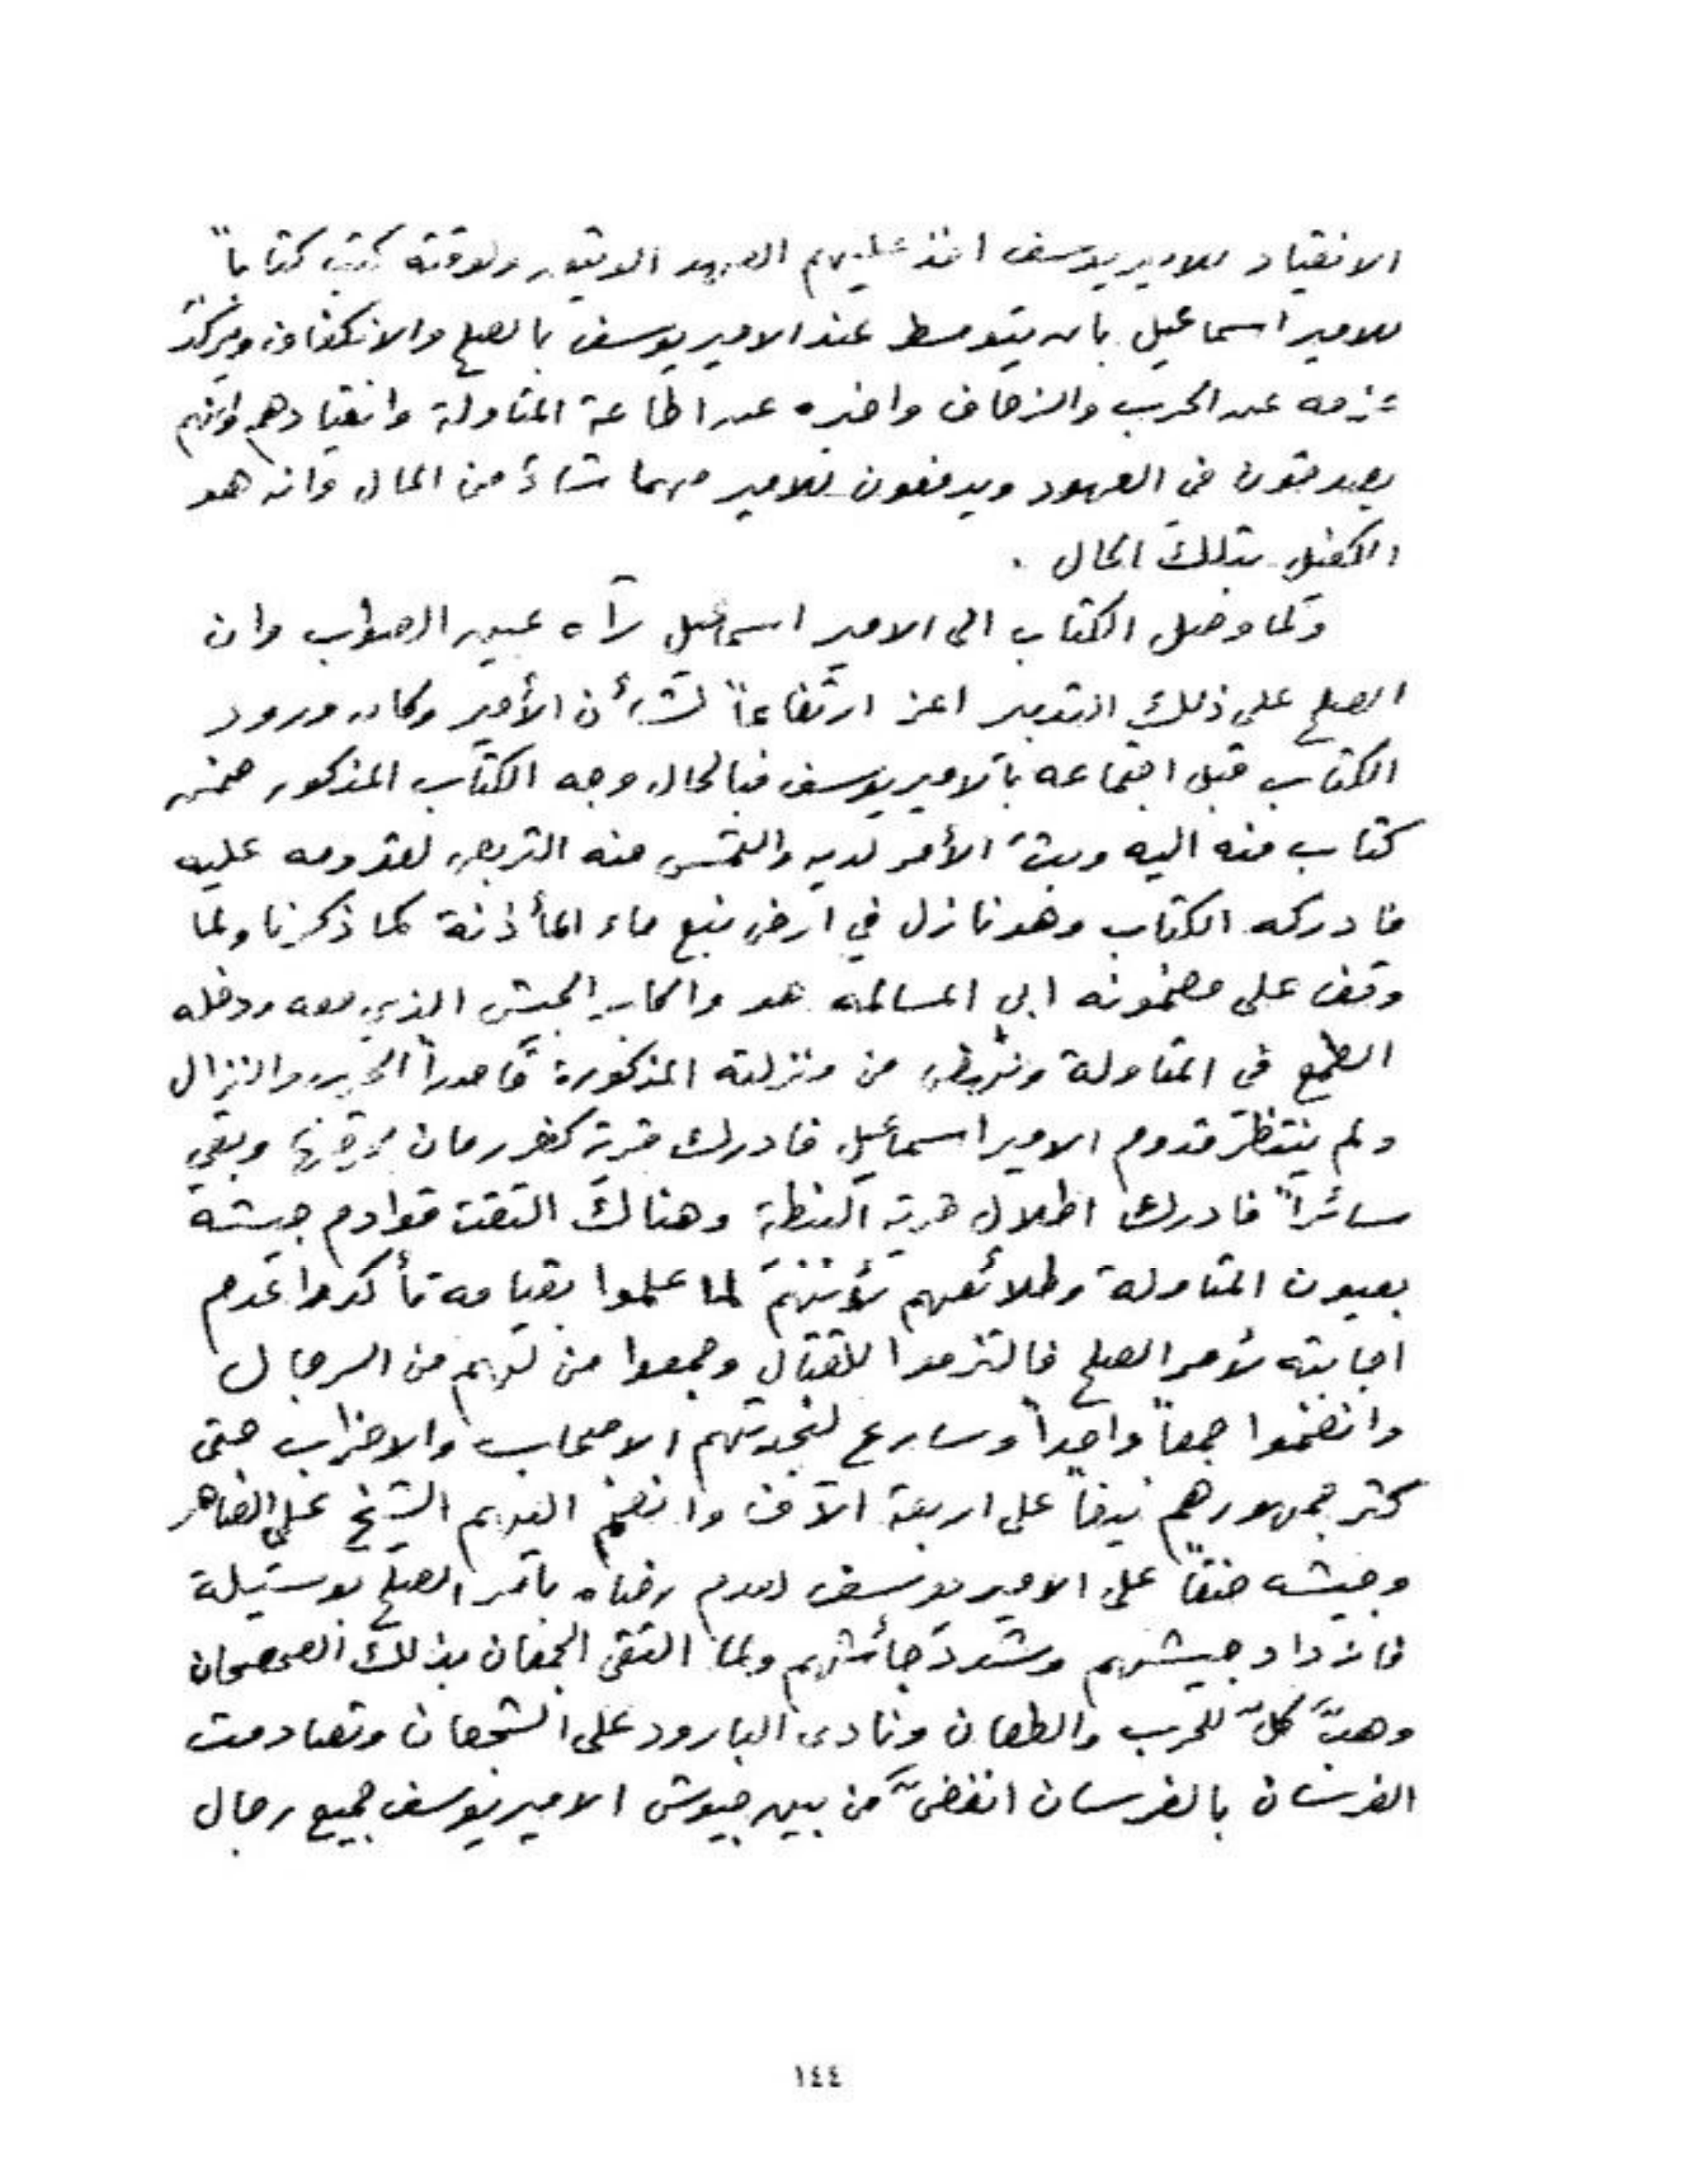 الانقياد للامير يوسف اخذ عليهم العهد الوثيق ولوقته كتب كتاباً
للامير اسماعيل بان يتوسط عند الامير يوسف بالصلح والانكفاف ويركد
عزمه عن الحرب والزحاف واخبره عن اطاعة المتاولة وانقيادهم وانهم
يصدقون في العهود ويدفعون للامير مهما شاءَ من المال وانه هو
الكفيل بتلك الحال .
ولما وصل الكتاب الى الامير اسماعيل رآه عين الصواب وان
الصلح على ذلك التدبير اعز ارتفاعاً لشأن الأمير وكان ورود
الكتاب قبل اجتماعه بالامير يوسف فبالحال وجه الكتاب المذكور ضمن
كتاب منه اليه وبثّ الأمر لديه والتمس منه التربص لقدومه عليه
فادركه الكتاب وهو نازل في ارض نبع ماء المأذنة كما ذكرنا ولما
وقف على مضمونه ابى المسالمه هو واكابر الجيش الذي معه ودخله
الطمع في المتاولة ونهض من منزلته المذكورة قاصداً الحرب والنزال
ولم ينتظر قدوم الامير اسماعيل فادرك قرية كفررمان وبقي
سائراً فادرك اطلال قرية النبطية وهناك التقت قوادم جيشه
بعيون المتاولة وطلائعهم لأنهم لما علموا بقيامه تأكدوا عدم
اجابته لأمر الصلح فالتزموا للقتال وجمعوا من لديهم من الرجال
وانضموا جمعاً واحداً وسارع لنجدتهم الاصحاب والاحزاب حتى
كثر جمهورهم نيفاً على اربعة الآف وانضم اليهم الشيخ علي الضاهر
وجيشه حنقاً على الامير يوسف لعدم رضاه بأمر الصلح بوسيلة
فازداد جيشهم وشدد جأشهم ولما التقى الجمعان بذلك الصحصحان
وهبَّ كلٌّ للحرب والطعان ونادى البارود على الشجعان وتصادمت
الفرسان بالفرسان انفضَّ من بين جيوش الامير يوسف جميع رجال
١٤٤